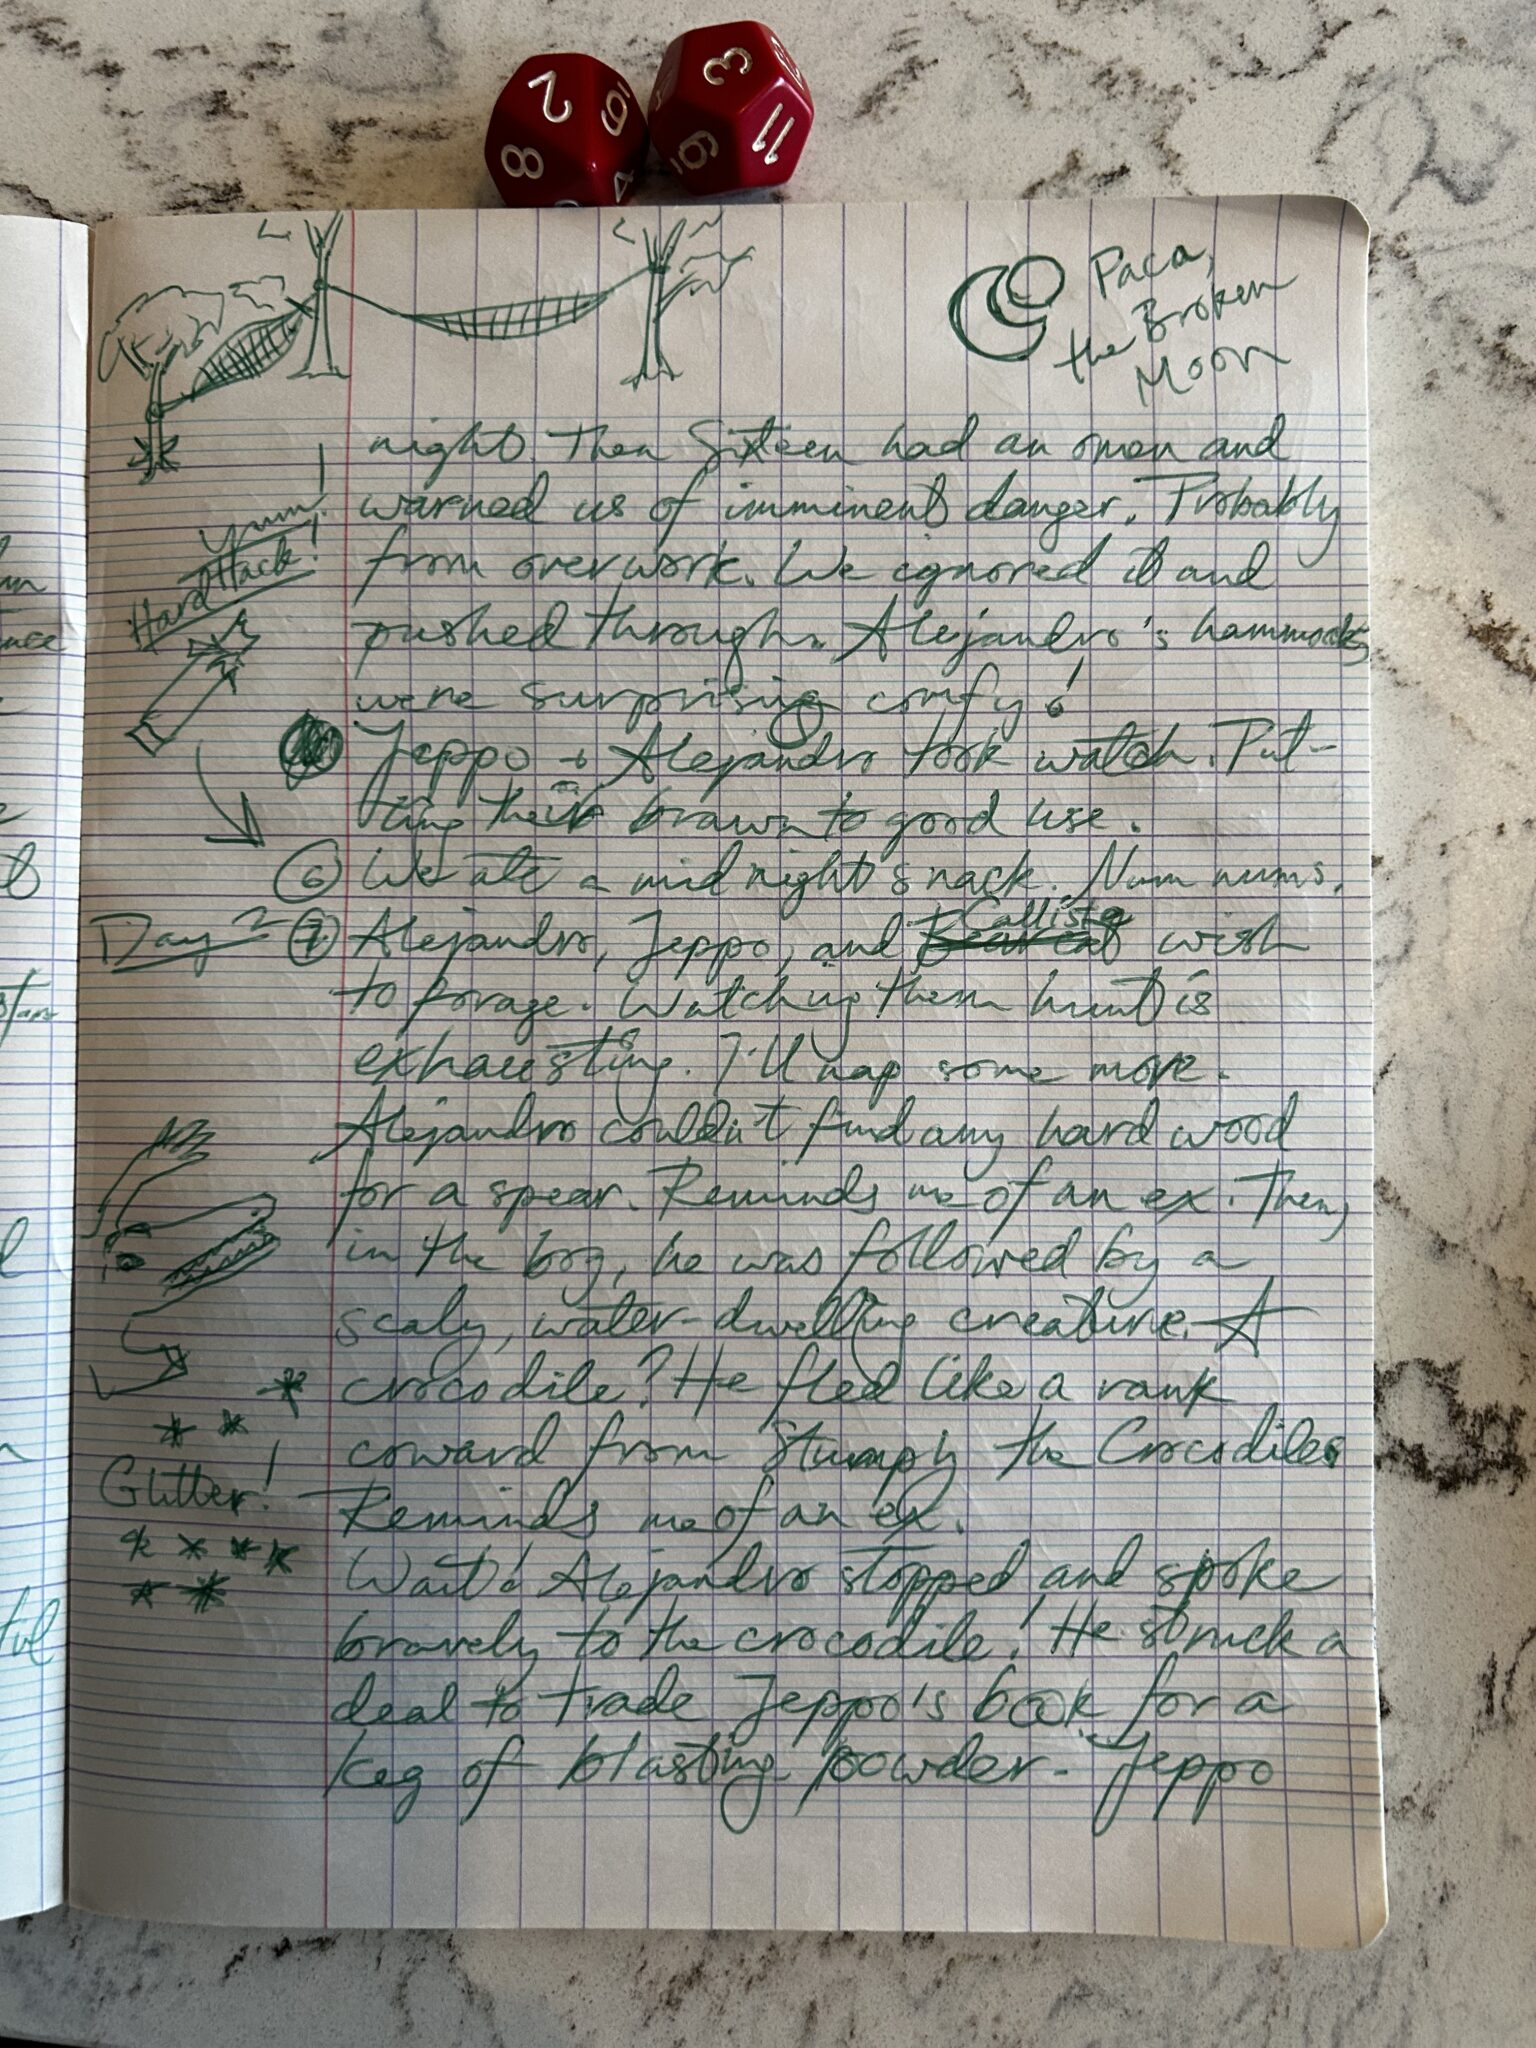 2
8
3
11
9
Paca,
the Broken
Moon
night. Then Sixteen had an omen and
warned us of imminent danger. Probably
from overwork. We ignored it and
pushed through. Alejandro's hammocks
were surprising comfy!
Yum!
Hard Tack!
Jeppo + Alejandro took watch. Put-
ting their brawn to good use.
6 We ate a midnight snack. Num nums.
Day 2 7 Alejandro, Jeppo, and Callista wish
to forage. Watching them hunt is
exhausting. I'll nap some more.
Alejandro couldn't find any hard wood
for a spear. Reminds me of an ex. Then,
in the bog, he was followed by a
scaly, water-dwelling creature. A
crocodile? He fled like a rank
coward from Stumply the Crocodile.
Glitter!
Reminds me of an ex.
Wait! Alejandro stopped and spoke
bravely to the crocodile! He struck a
deal to trade Jeppo's book for a
keg of blasting powder. Jeppo